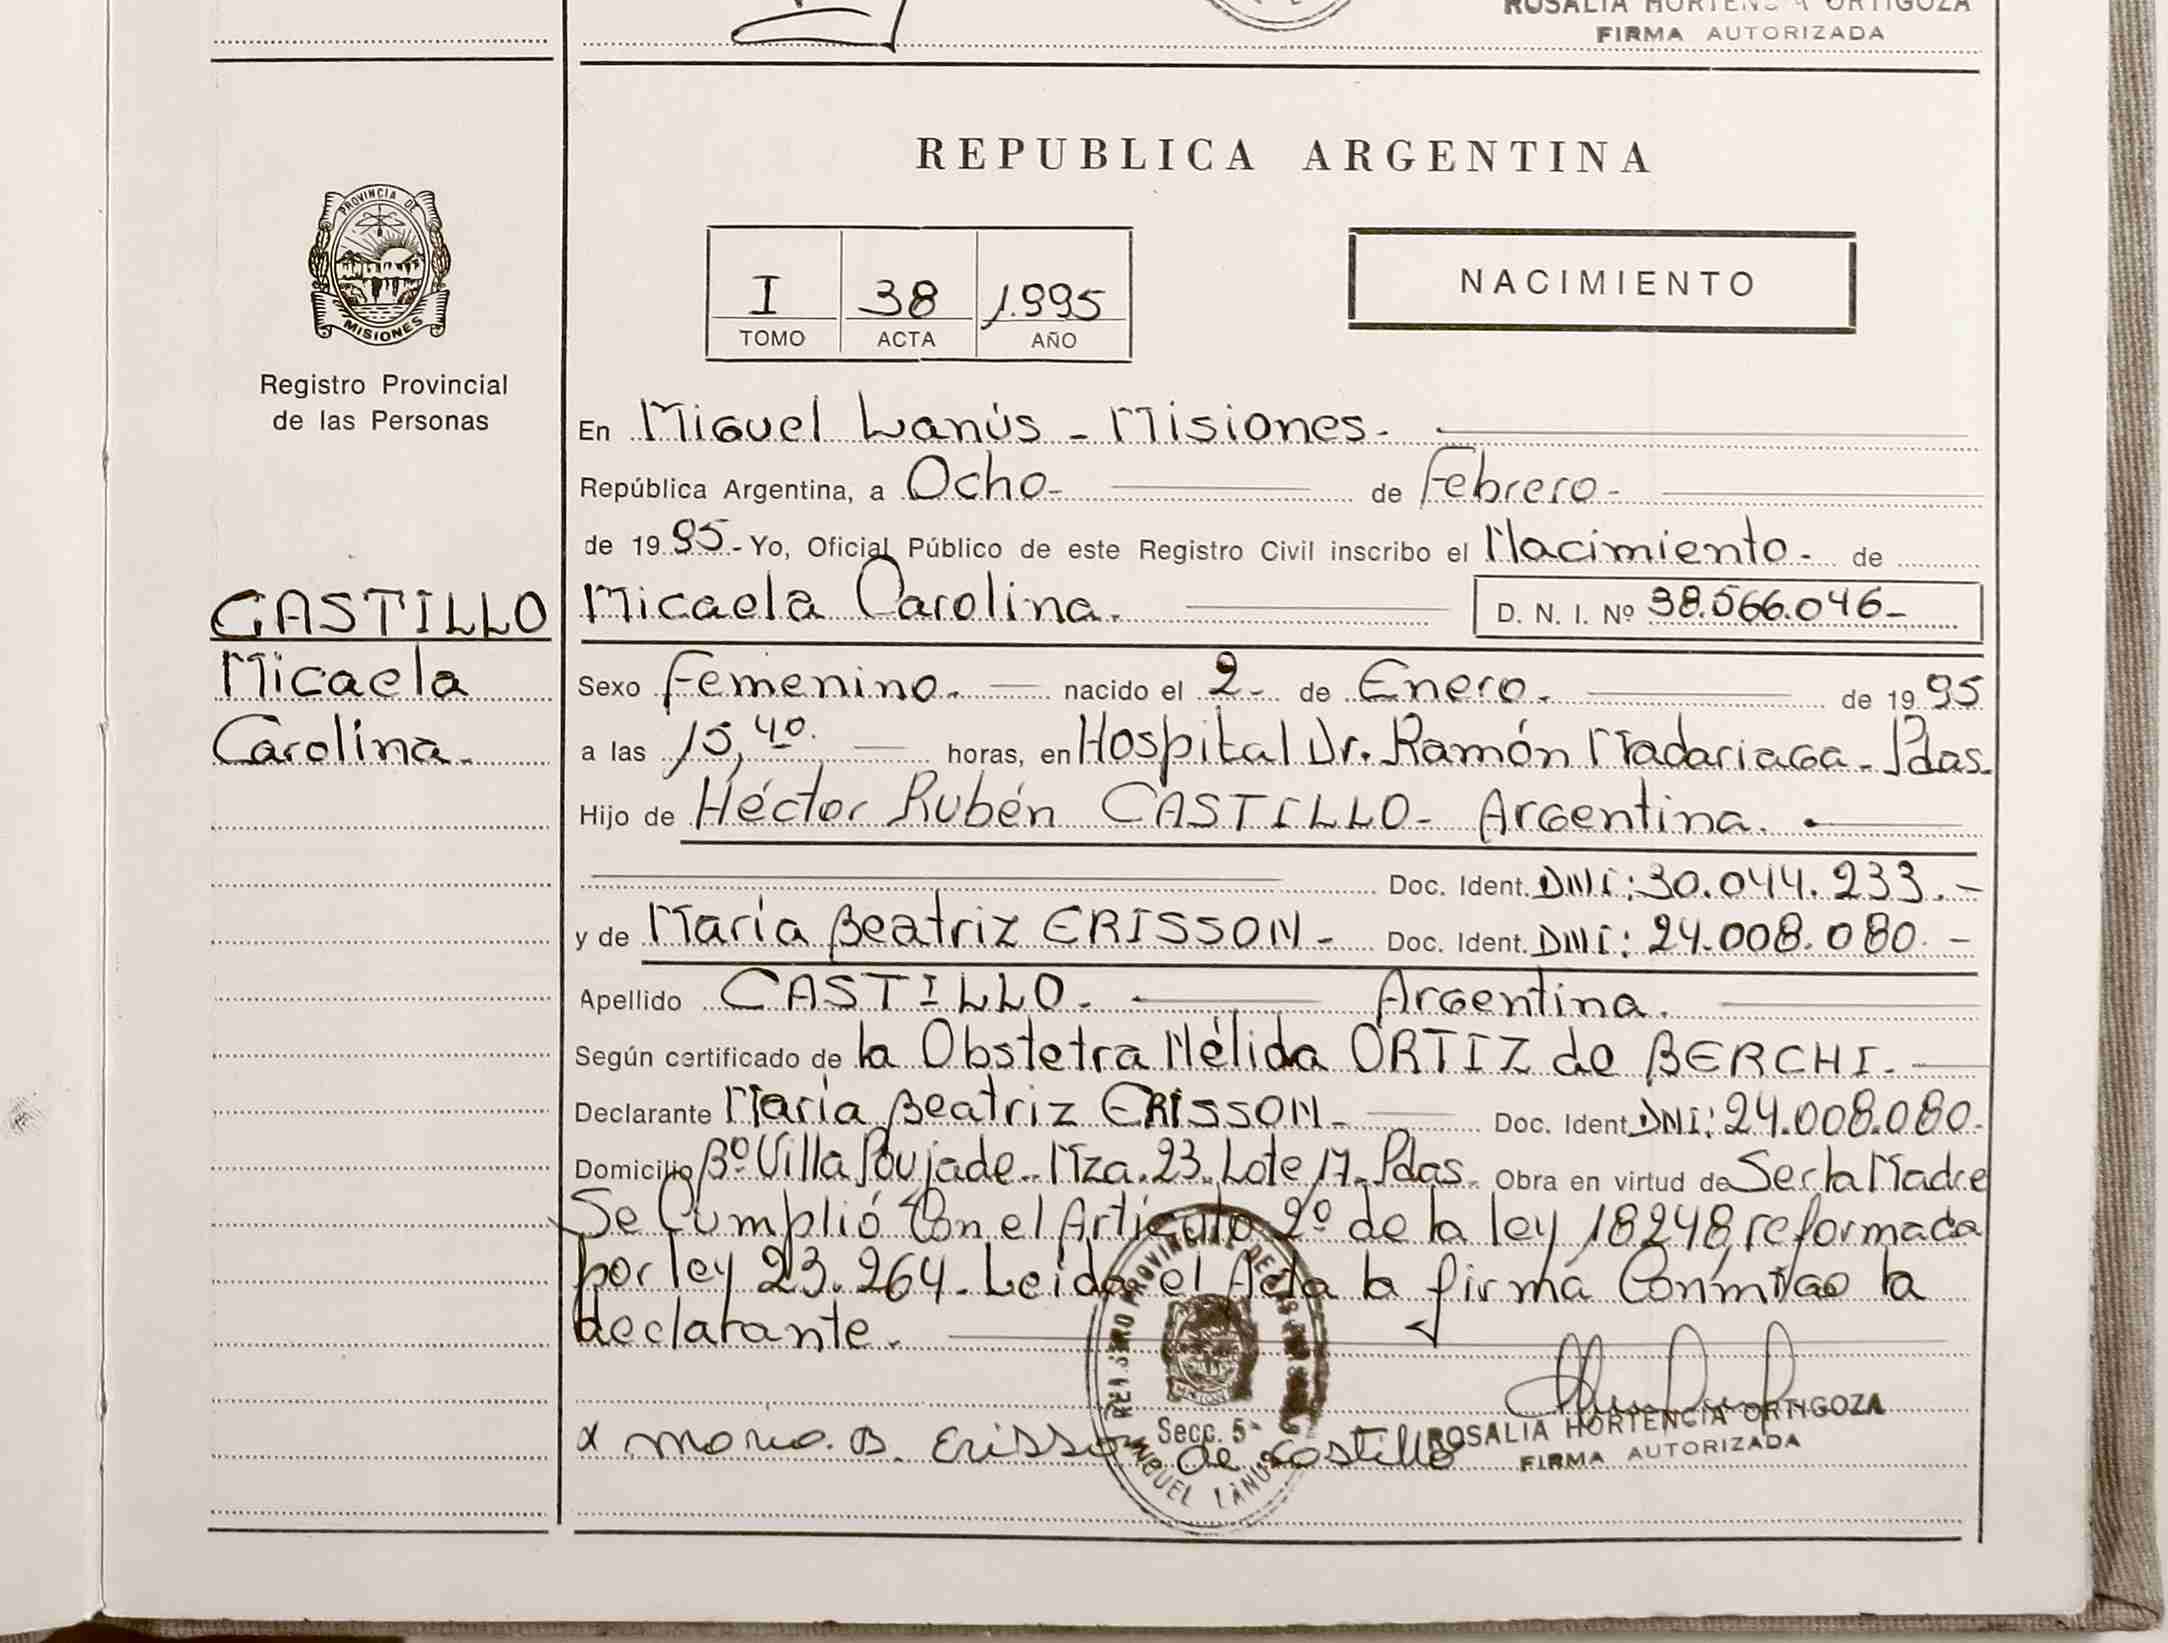 ROSALIA HORTENCIA ORTIGOZA
FIRMA AUTORIZADA
REPUBLICA ARGENTINA
PROVINCIA DE
MISIONES
Registro Provincial
de las Personas
I 38 1.995
TOMO ACTA AÑO
NACIMIENTO
En Miguel Lanús - Misiones.
República Argentina, a Ocho- de Febrero-
de 19 95.- Yo, Oficial Público de este Registro Civil inscribo el Nacimiento- de
CASTILLO
Micaela
Carolina-
Micaela Carolina. D. N. I. Nº 38.566.046-
Sexo Femenino.- nacido el 2- de Enero.- de 19 95
a las 15,40. horas, en Hospital Dr. Ramón Madariaga- Pdas.
Hijo de Héctor Rubén CASTILLO- Argentina.
Doc. Ident. DNI: 30.044.233.-
y de María Beatriz ERISSON- Doc. Ident. DNI: 24.008.080.-
Apellido CASTILLO- Argentina.
Según certificado de la Obstetra Nélida ORTIZ de BERCHI.-
Declarante María Beatriz ERISSON- Doc. Ident DNI: 24.008.080-
Domicilio Bº Villa Poujade- Mza. 23- Lote 17- Pdas. Obra en virtud de Ser la Madre
Se Cumplió Con el Artículo 2º de la ley 18248, reformada
por ley 23.264- Leída el Acta la firma Conmigo la
declarante.-
x Maria. B. Erisson de Castillo
REGISTRO PROVINCIAL DE LAS PERSONAS
Secc. 5ª
MIGUEL LANUS
ROSALIA HORTENCIA ORTIGOZA
FIRMA AUTORIZADA